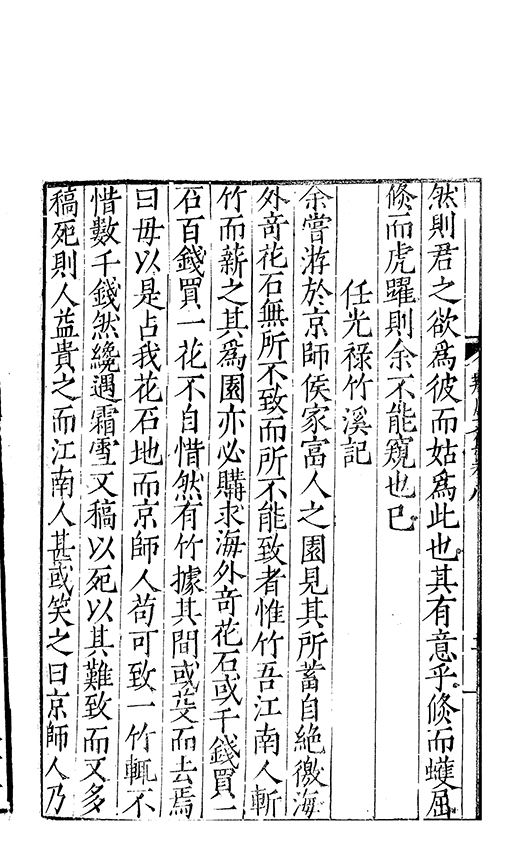 然則君之欲為彼而姑為此也其有意乎倏而蠖屈
倏而虎躍則余不能窺也已
任光祿竹溪記
余嘗游於京師侯家富人之園見其所蓄自絶徼海
外奇花石無所不致而所不能致者惟竹吾江南人斬
竹而薪之其為園亦必購求海外奇花石或千錢買一
石百錢買一花不自惜然有竹據其間或芟而去焉
曰毋以是占我花石地而京師人苟可致一竹輒不
惜數千錢然纔遇霜雪又槁以死以其難致而又多
槁死則人益貴之而江南人甚或笑之曰京師人乃